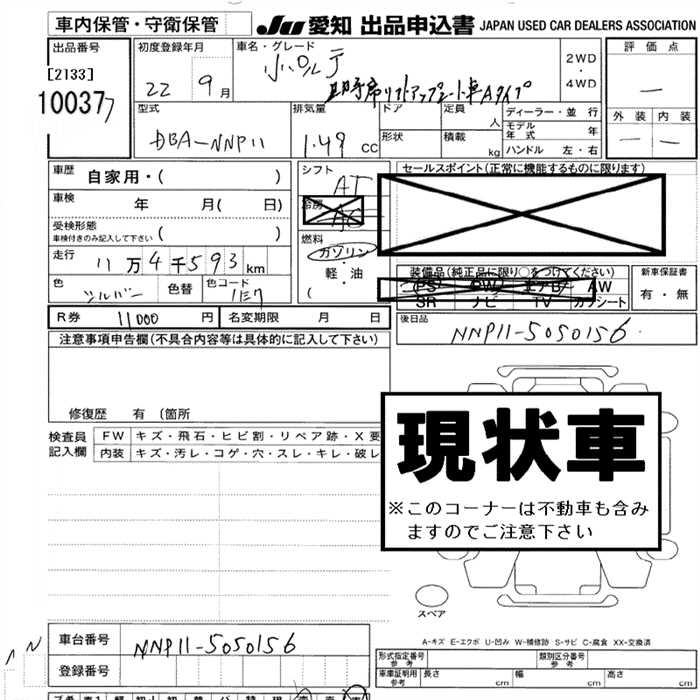 車内保管・守衛保管
JU 愛知 出品申込書 JAPAN USED CAR DEALERS ASSOCIATION
出品番号
[2133]
10037
初度登録年月
22 9月
車名・グレード
ポルテ
助手席リフトアップシート車Aタイプ
2WD
・
4WD
評価点
—
外装 内装
— —
型式
DBA-NNP11
排気量
1.49 CC
ドア
形状
定員 人
積載 kg
ディーラー・並行
モデル年式 年
ハンドル 左・右
車歴 自家用・( )
車検 年 月( 日)
受検形態
車検付きのみ記入して下さい ( )
走行 11万4千593km
色 シルバー 色替
色コード 1E7
シフト
AT
冷房
AC
燃料
ガソリン
・
軽・油
(
セールスポイント(正常に機能するものに限ります)
装備品(純正品に限り○をつけてください)
PS PW エアB AW
SR ナビ TV カワシート
新車保証書
有・無
R券 11000円 名変期限 月 日
後日品
NNP11-5050156
注意事項申告欄(不具合内容等は具体的に記入して下さい)
修復歴 有 (箇所
検査員
記入欄
FW キズ・飛石・ヒビ割・リペア跡・X要
内装 キズ・汚レ・コゲ・穴・スレ・キレ・破レ
現状車
※このコーナーは不動車も含み
ますのでご注意下さい
スペア
A-キズ E-エクボ U-凹み W-補修跡 S-サビ C-腐食 XX-交換済
車台番号 NNP11-5050156
登録番号
形式指定番号
参考
類別区分番号
参考
車庫証明用
参考
長さ cm 幅 cm 高さ cm